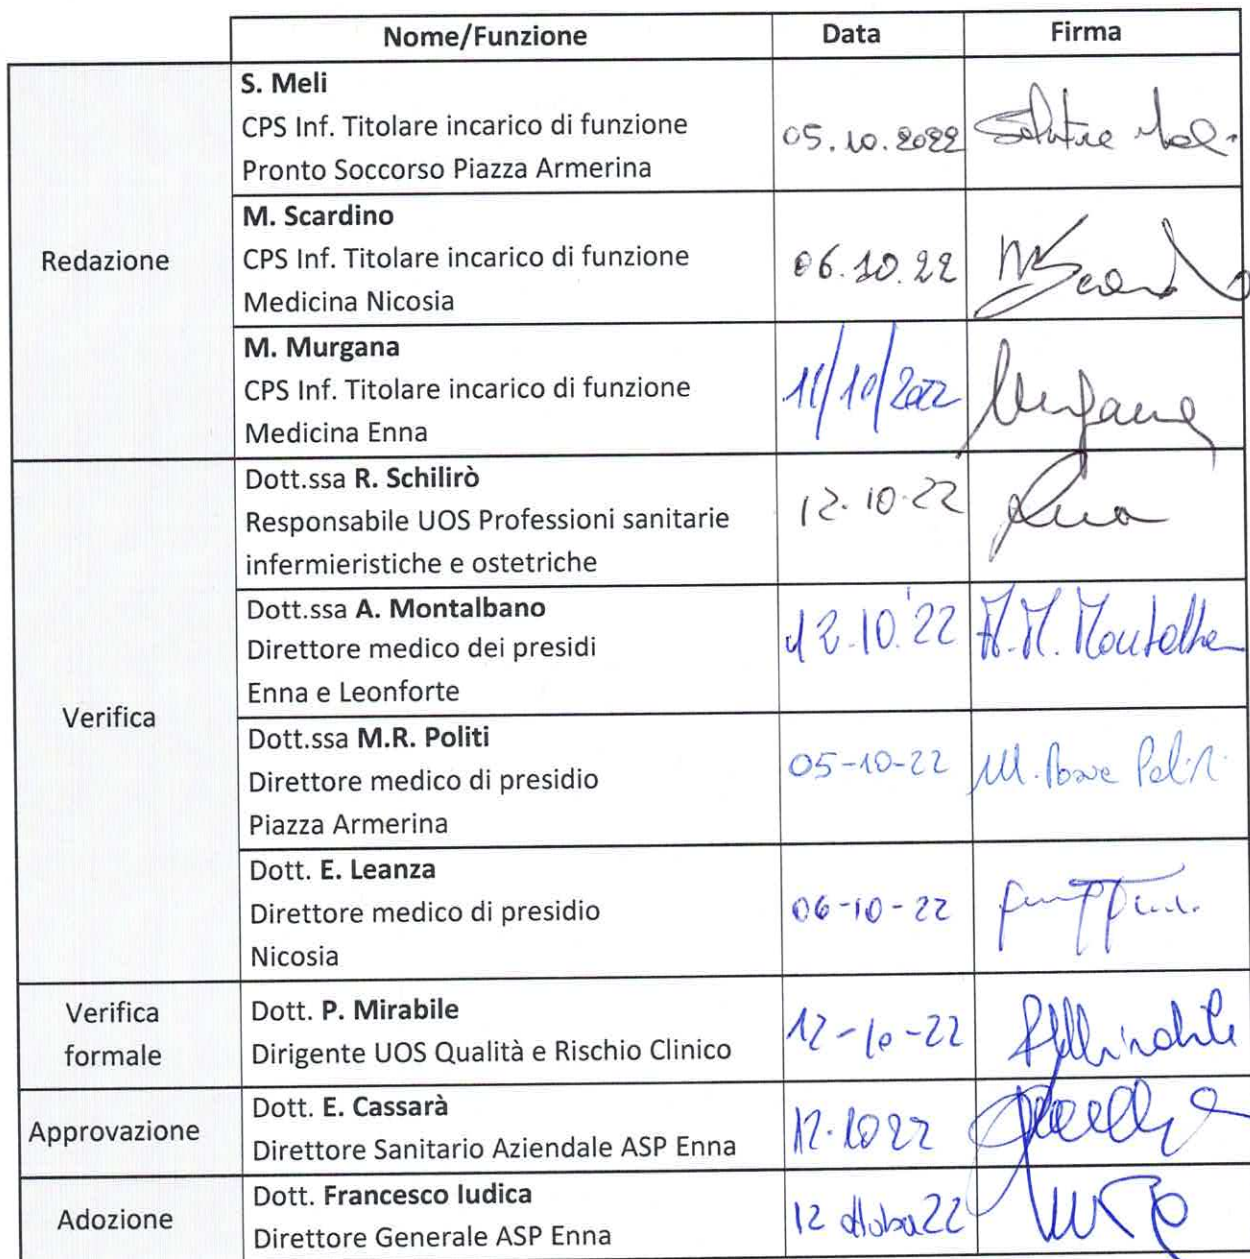 Nome/Funzione Data Firma
Redazione
S. Meli
CPS Inf. Titolare incarico di funzione
Pronto Soccorso Piazza Armerina
05.10.2022 Salvatore
M. Scardino
CPS Inf. Titolare incarico di funzione
Medicina Nicosia
06.10.22
M. Murgana
CPS Inf. Titolare incarico di funzione
Medicina Enna
11/10/2022 Murgana
Verifica
Dott.ssa R. Schilirò
Responsabile UOS Professioni sanitarie
infermieristiche e ostetriche
12.10.22
Dott.ssa A. Montalbano
Direttore medico dei presidi
Enna e Leonforte
12.10.'22 A.M. Montalbano
Dott.ssa M.R. Politi
Direttore medico di presidio
Piazza Armerina
05-10-22 M. Rosa Politi
Dott. E. Leanza
Direttore medico di presidio
Nicosia
06-10-22
Verifica
formale
Dott. P. Mirabile
Dirigente UOS Qualità e Rischio Clinico
12-10-22 Mirabile
Approvazione
Dott. E. Cassarà
Direttore Sanitario Aziendale ASP Enna
12.1022
Adozione
Dott. Francesco Iudica
Direttore Generale ASP Enna
12 ottobre 22